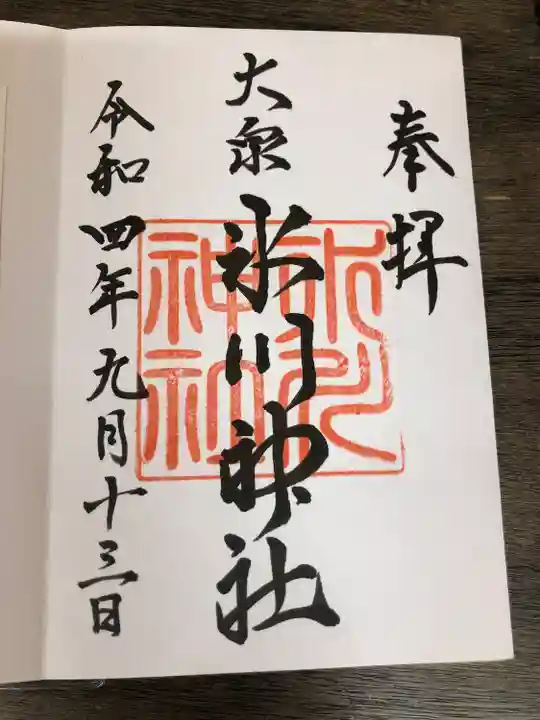 奉拝
大泉氷川神社
氷川
神社
令和四年九月十三日